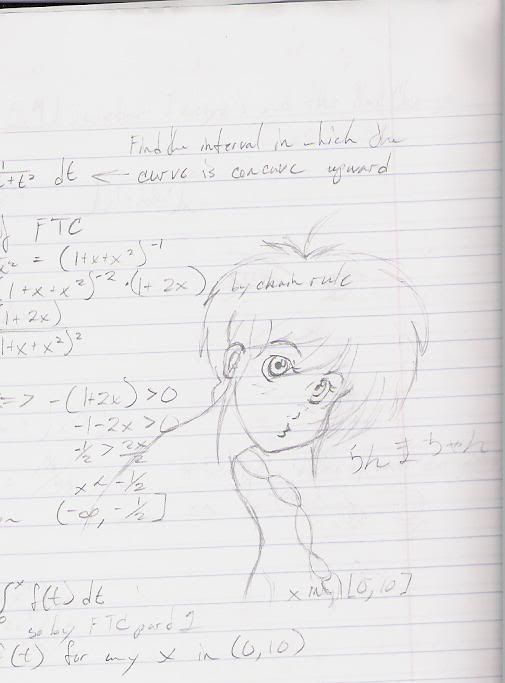 Find the interval in which the
1/1+t+t² dt ← curve is concave upward
of FTC
x² = (1+x+x²)⁻¹
(1+x+x²)⁻² · (1+2x), by chain rule
(1+2x)
(1+x+x²)²
=> -(1+2x) > 0
-1-2x > 0
-1/2 > 2x/2
x < -1/2
(-∞, -1/2]
らんまちゃん
∫₀ˣ f(t) dt
x in [0, 10]
so by FTC part 1
f(t) for any x in (0, 10)